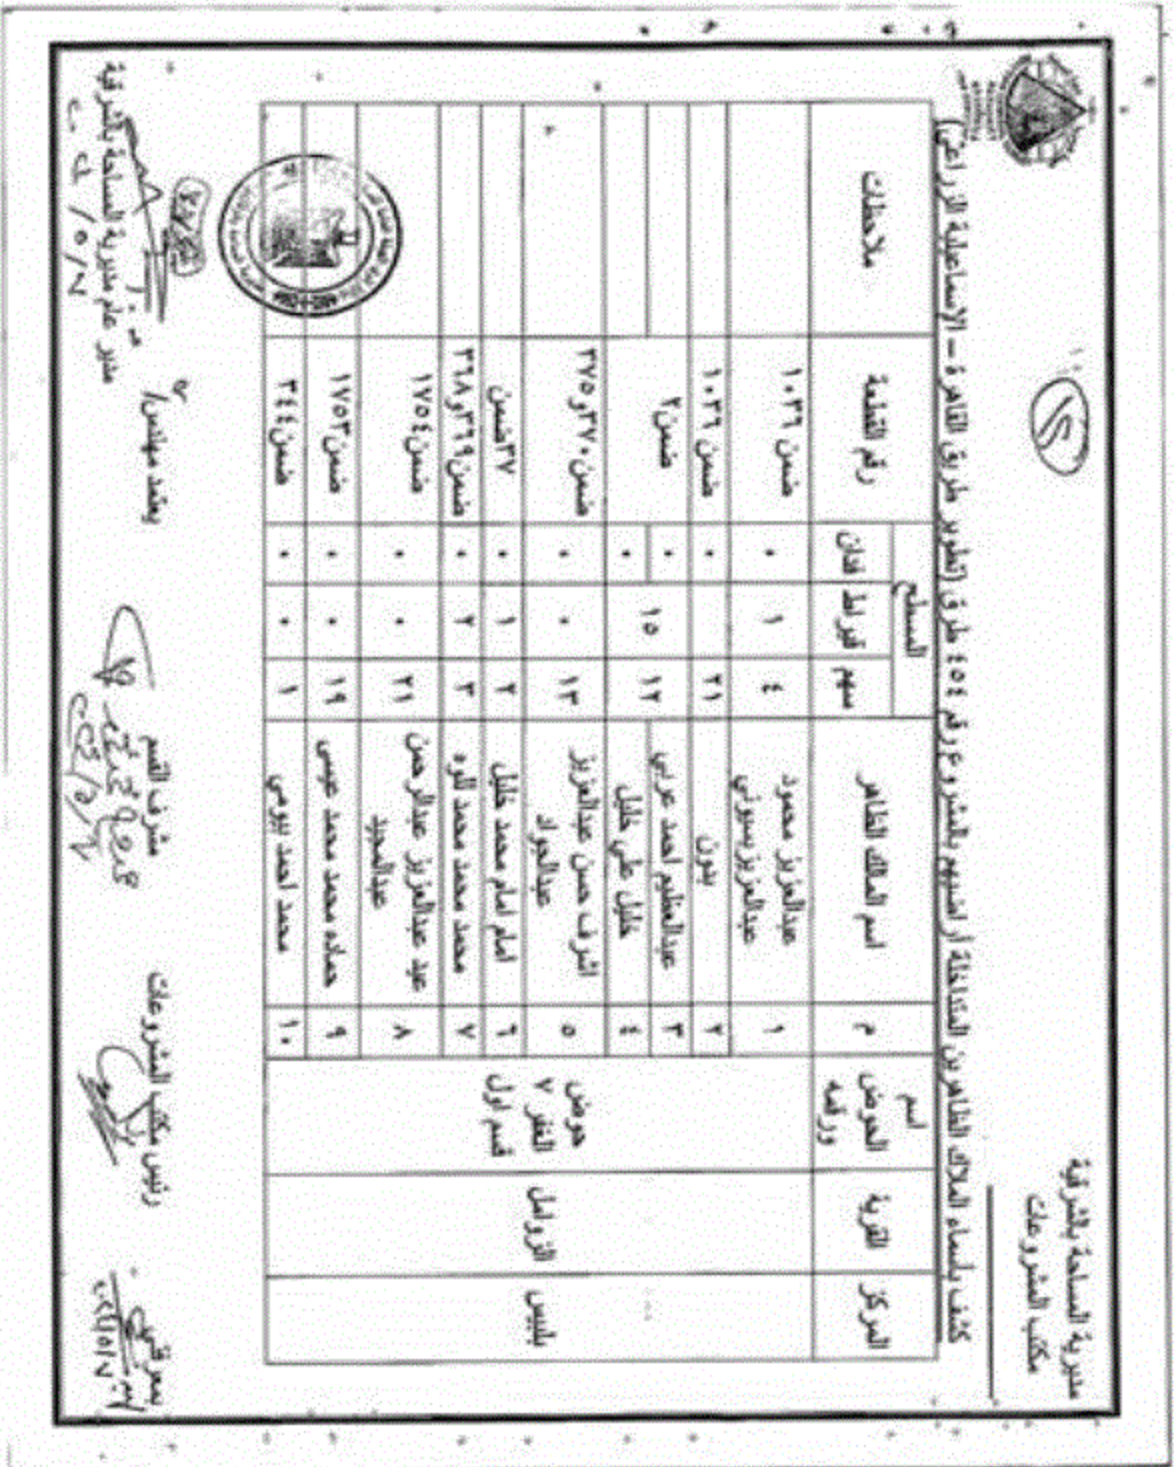 مديرية المساحة بالشرقية
مكتب المشروعات
كشف بأسماء الملاك الظاهرين المتداخلة أراضيهم بالمشروع رقم ٤٥٤ طرق (تطوير طريق القاهرة – الإسماعيلية الزراعى)
المركز القرية اسم الحوض ورقمه م اسم المالك الظاهر المسطح رقم القطعة ملاحظات
سهم قيراط فدان
بلبيس الزوامل حوض الغفر ٧ قسم اول
١ عبدالعزيز محمود عبدالعزيز بسيوني ٤ ١ ٠ ضمن ١٠٣٦
٢ بدون ٢١ ٠ ضمن ١٠٣٦
٣ عبدالعظيم احمد عربي ١٢ ١٥ ٠ ضمن ٢
٤ خليل علي خليل ٠
٥ اشرف حسن عبدالعزيز عبدالجواد ١٣ ٠ ٠ ضمن ٣٧٠ و ٣٧٥
٦ امام امام محمد خليل ٢ ١ ٠ ٣٧ ضمن
٧ محمد محمد محمد للوه ٣ ٢ ٠ ضمن ٣٦٩ و ٣٦٨
٨ عيد عبدالعزيز عبدالرحمن عبدالمجيد ٢١ ٠ ٠ ضمن ١٧٥٤
٩ حماده محمد محمد عيسى ١٩ ٠ ٠ ضمن ١٧٥٣
١٠ محمد احمد بيومي ١ ٠ ٠ ضمن ٣٤٤
رئيس مكتب المشروعات مشرف القسم يعتمد مهندس/
مدير عام مديرية المساحة بالشرقية